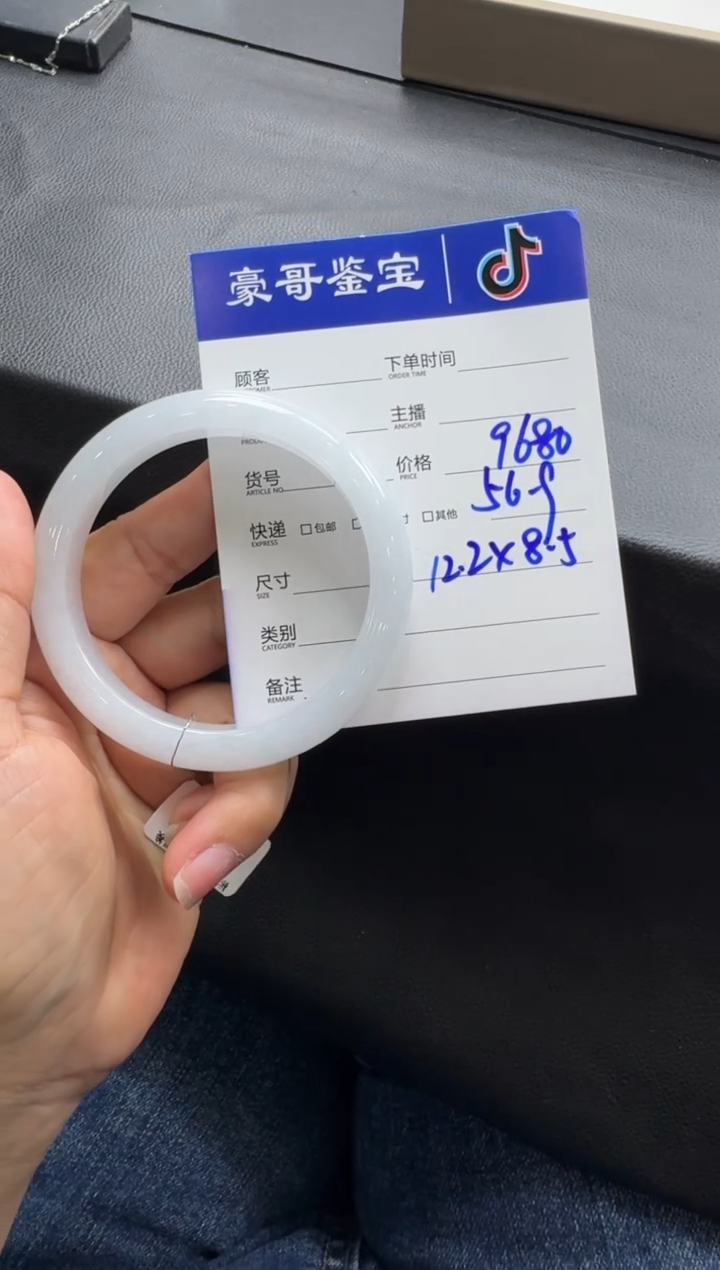 豪哥鉴宝
顾客
下单时间
ORDER TIME
主播
ANCHOR
货号
ARTICLE NO.
价格
PRICE
9680
快递
EXPRESS
包邮
其他
56
尺寸
SIZE
12.2×8.5
类别
CATEGORY
备注
REMARK